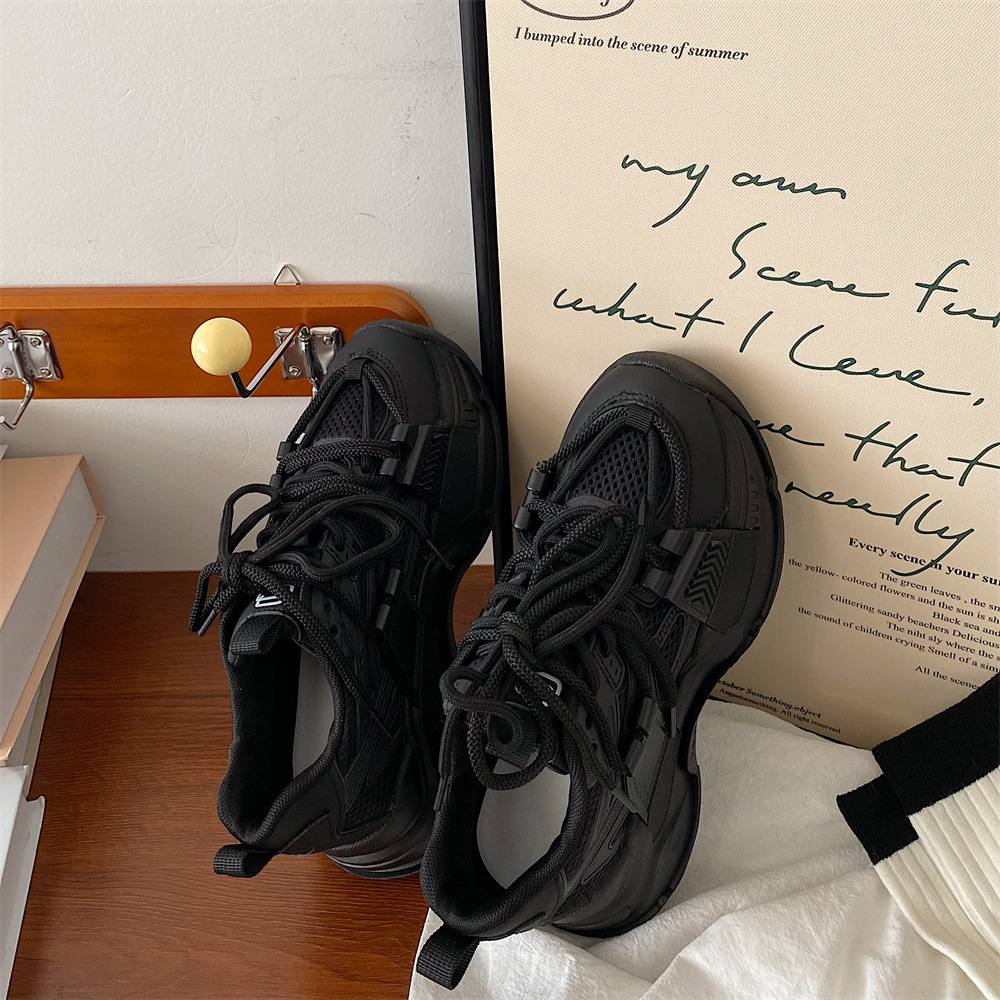 I bumped into the scene of summer
my own
Scene
what I Love,
that
Every scene in your
The green leaves , the
the yellow- colored flowers and the sun is
Glittering sandy beachers
Black sea and
the sound of children crying Smell of a
The niht sly where the
All the scenes
Something,object
All right reserved